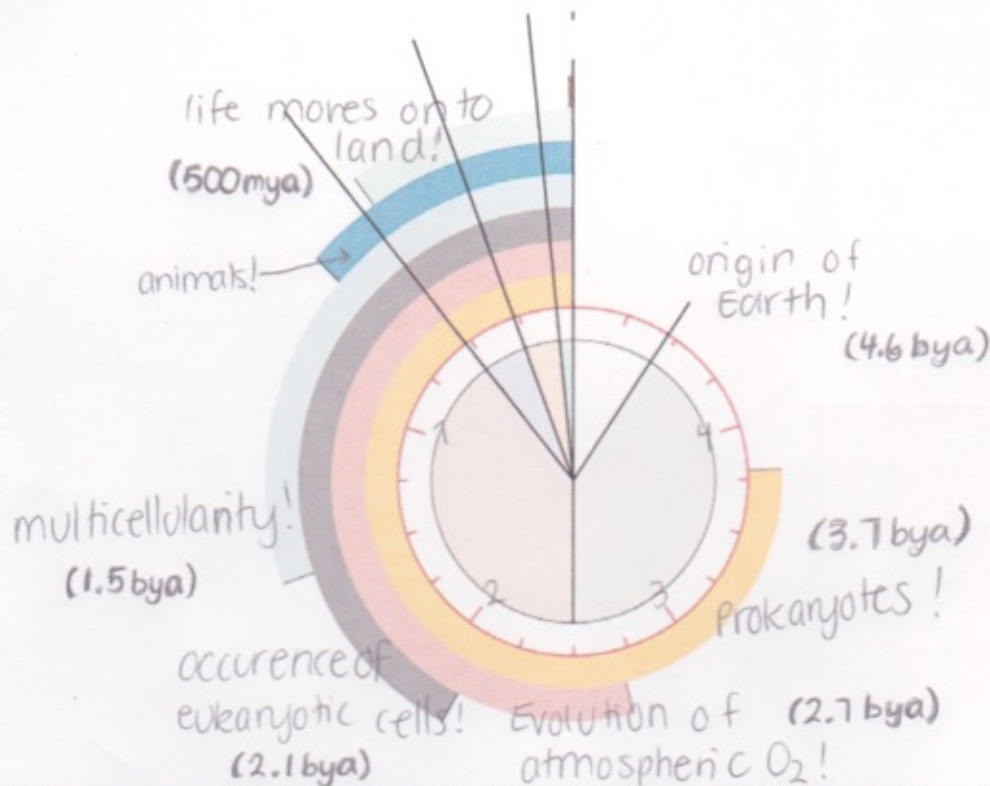 life moves on to
land!
(500mya)
animals!
origin of
Earth!
(4.6 bya)
1
4
multicellularity!
(1.5 bya)
2
3
(3.7 bya)
Prokaryotes!
occurence of
eukaryotic cells!
(2.1 bya)
Evolution of
atmospheric O₂!
(2.7 bya)